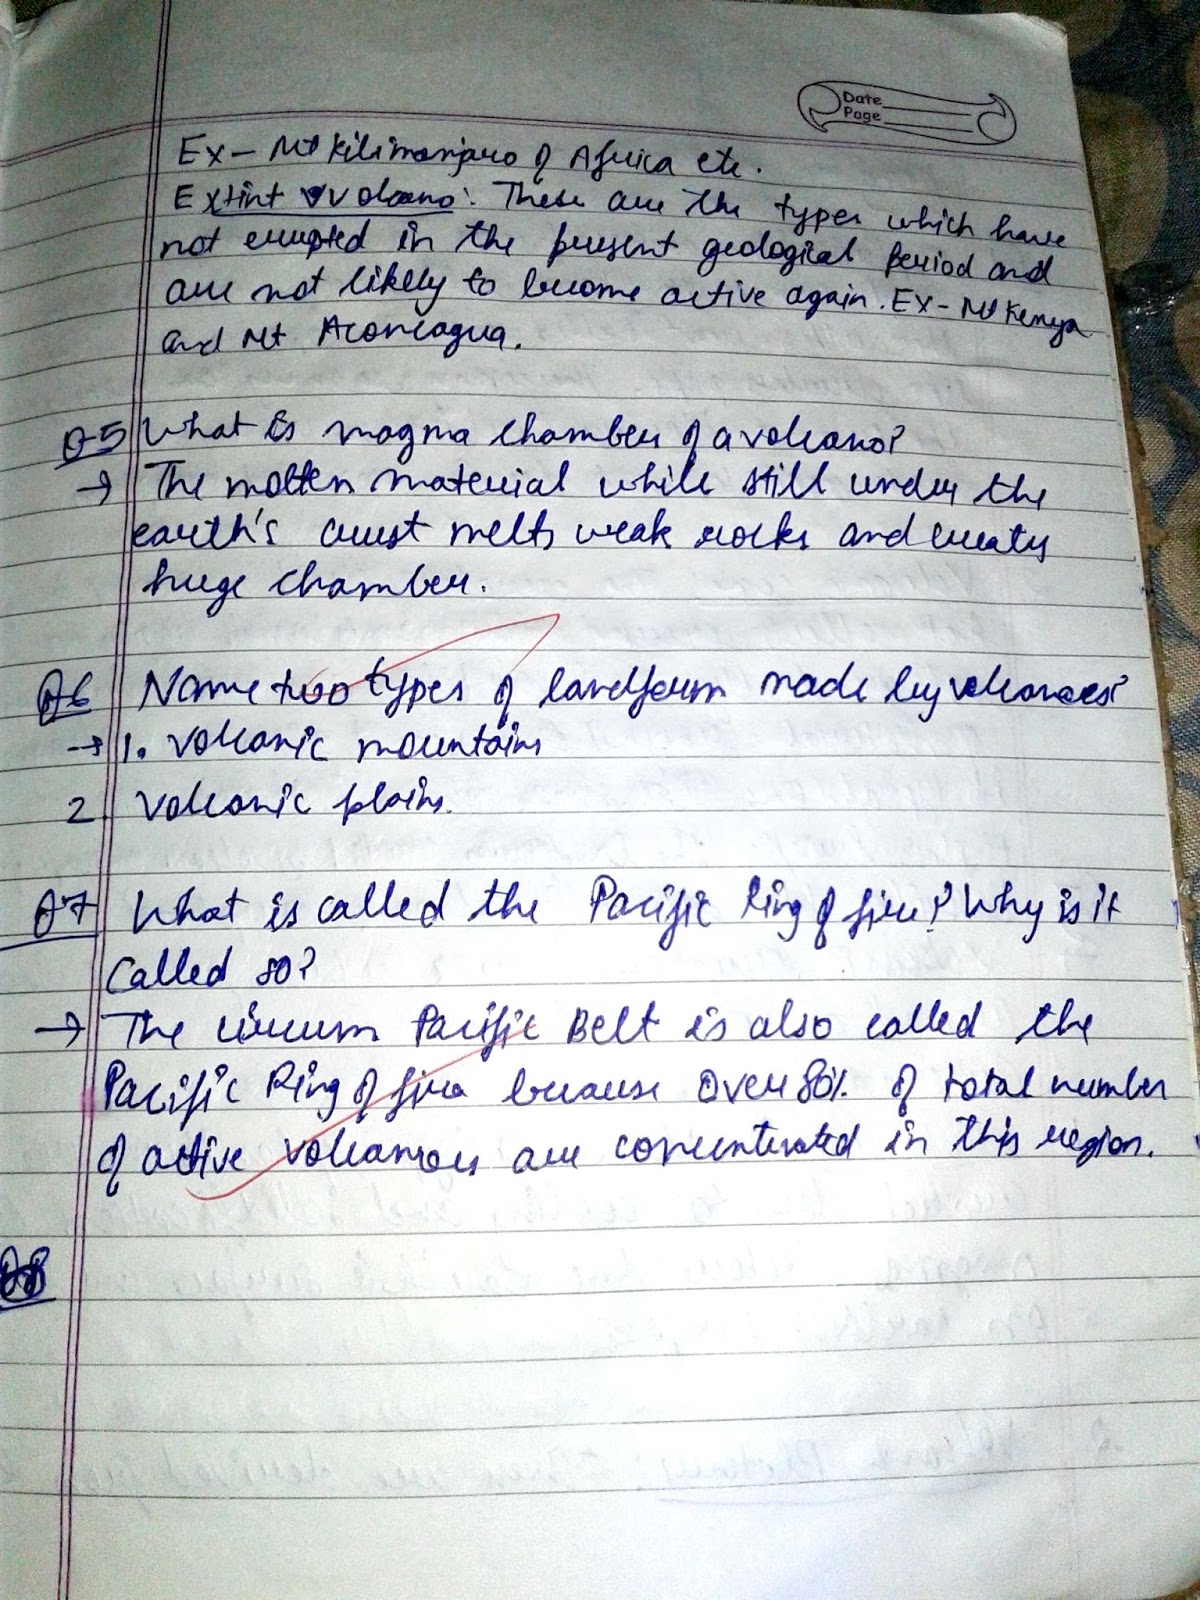 Date
Page
Ex - Mt Kilimanjaro of Africa etc.
Extint volcano: These are the types which have
not erupted in the present geological period and
are not likely to become active again. Ex - Mt Kenya
and Mt Aconcagua.
Q5 What is magma chamber of a volcano?
→ The molten material while still under the
earth's crust melts weak rocks and creates
huge chamber.
Q6 Name two types of landform made by volcanoes?
→ 1. volcanic mountains
2 volcanic plains.
Q7 What is called the Pacific Ring of fire? Why is it
called so?
→ The circum Pacific Belt is also called the
Pacific Ring of fire because over 80% of total number
of active volcanoes are concentrated in this region.
Q8